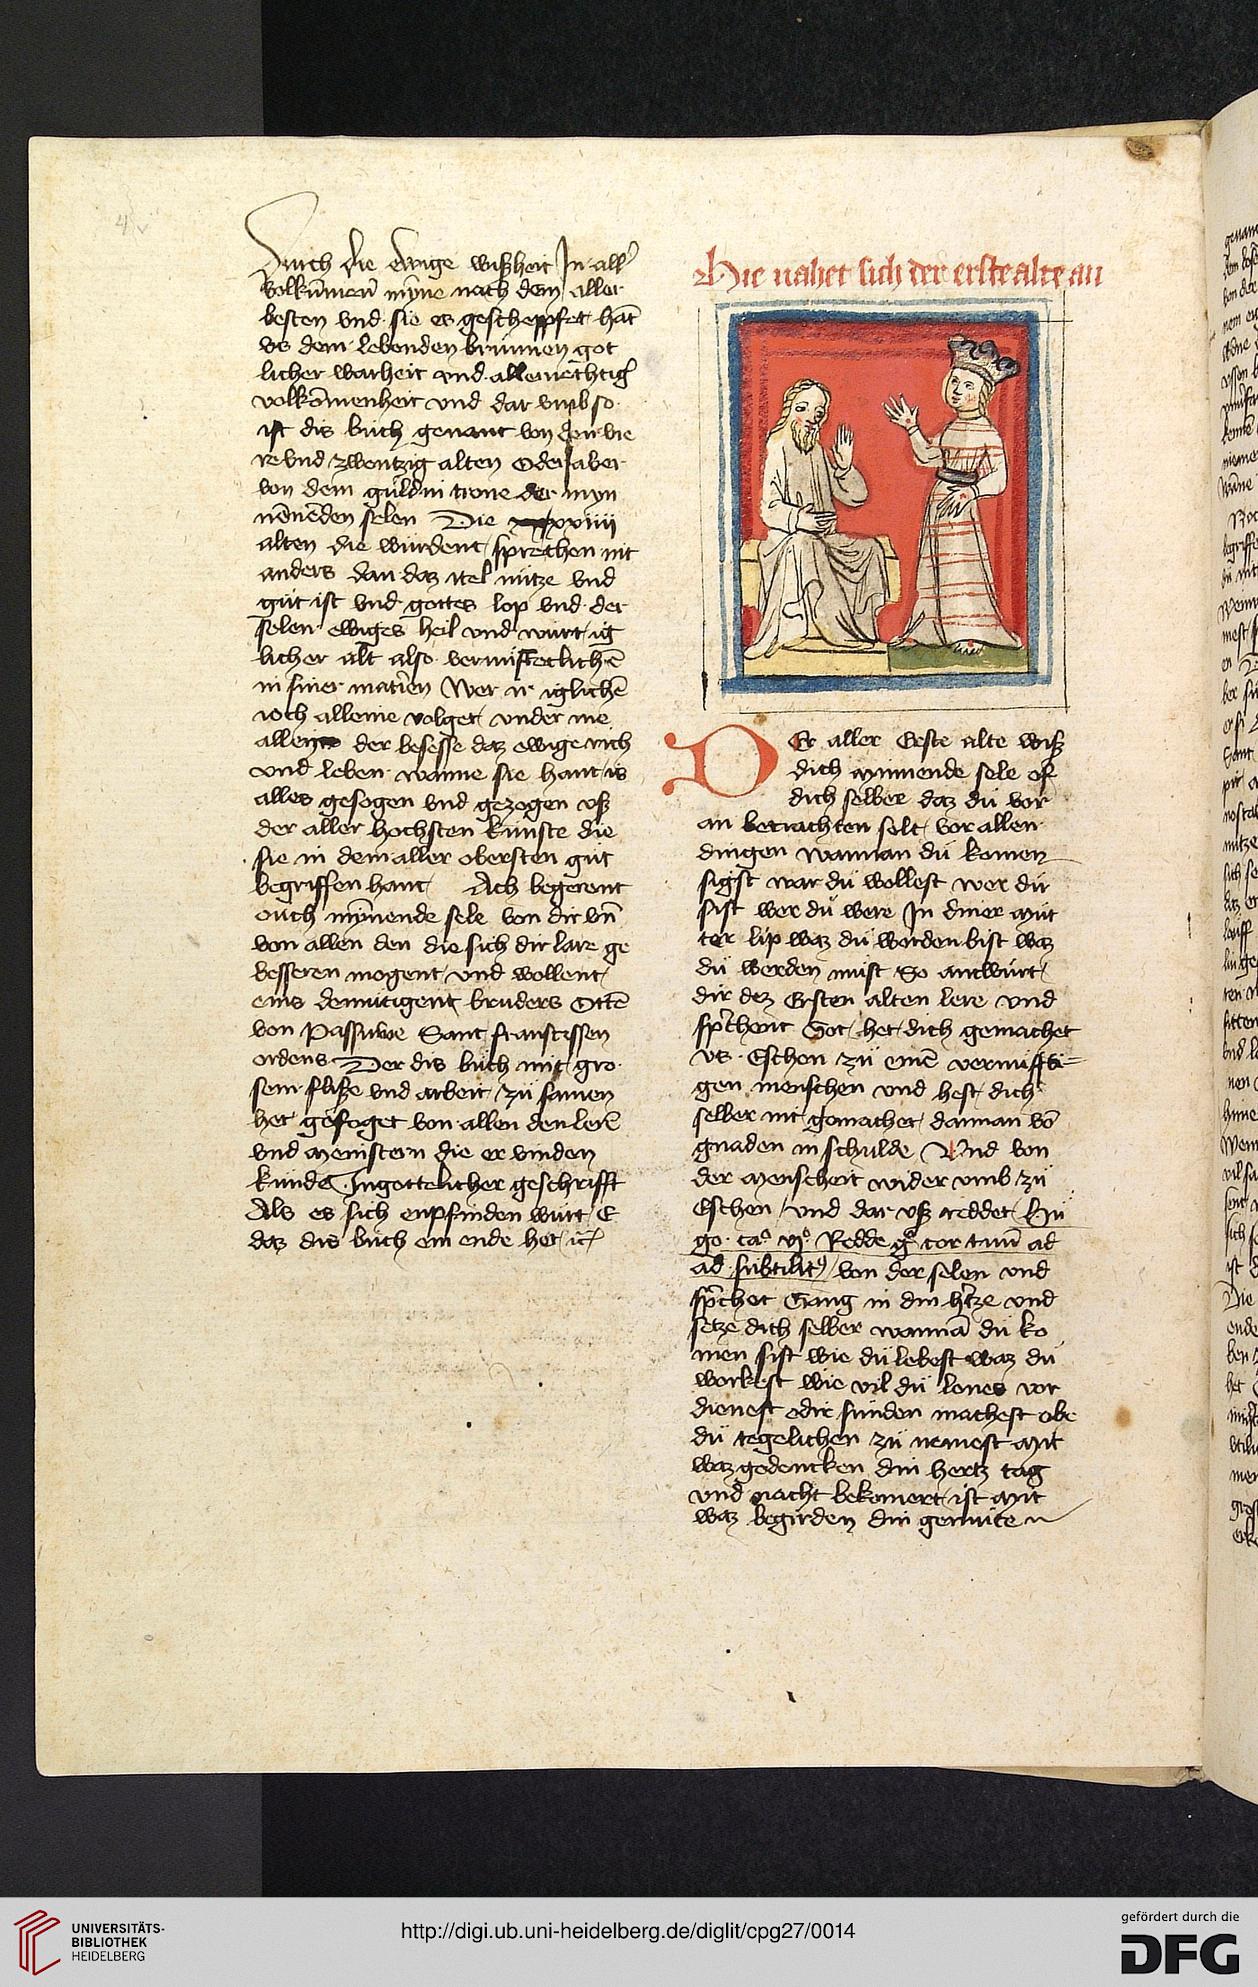 4v
Durch die ewige wißheit In all'
volkūmenē mȳne nach dem aller
besten vnd sie es geschepfet hat
vs dem lebenden brunnen got
licher warheit vnd allemechtig'
volkōmenheit vnd dar vmb so
ist dis buch genant von den vie
re vnd zwentzig alten Oder aber
von dem guldin trone der myn
nēnēden selen Die xxiiii
alten die wurdent sprechen nit
anders dan daz itel nütze vnd
güt ist vnd gottes lop vnd der
selen ewiges heil vnd würt ig
licher alt also vernüftetlichē
in siner matien Wer ir iglichē
ioch alleine volget vnder ine
allen der besesse daz ewige rich
vnd leben wanne sie hant is
alles gesogen vnd gezogen vß
der aller hochsten kunste die
sie in dem aller obersten güt
begriffen hant Ach begerent
ouch mȳnende sele von dir vn̄
von allen den die sich dir lare ge
besseren mogent vnd wollent
eins demütigent bruders Ottē
von Passuwe Sant franscissen
ordens Der dis büch mit gro
sem fliße vnd arbeit zü samen
het gefoget von allen den lerē
vnd meinstern die er vinden
kunde In gottelicher geschrifft
Als es sich enpfinden würt E
daz dis büch ein ende het ic
Hie nahet sich der erste alte an
DEr aller Erste alte wiß
dich mynnende sele of
dich selber daz dü vor
an betrachten solt vor allen
dingen wannan dü komen
sigst war dü wollest wer dü
sist wer dü were In diner müt
ter lip waz dü worden bist waz
dü werden müst So antwürt
dir dez Ersten alten lere vnd
sprichent Got het dich gemachet
vs Eschen zü einē vernuffti
gen menschen vnd hest dich
selber nit gemachet dannan vō
gnaden in schulde Vnd von
der menscheit wider vmb zü
Eschen vnd dar vß reddet Hü
go ca° vj° Redde g° cor tuū ad
ad subtilit' von der selen vnd
sprichet Gang in din h'tze vnd
setze dich selber wannā dü ko
men sist wie dü lebest waz dü
workest wie vil dü lones vor
dienest odir sunden machest obe
dü tegelichen zü nemest mit
waz gedencken din hertz tag
vnd nacht bekomert ist mit
waz begirden din gemüte
UNIVERSITÄTS-
BIBLIOTHEK
HEIDELBERG
http://digi.ub.uni-heidelberg.de/diglit/cpg27/0014
gefördert durch die
DFG